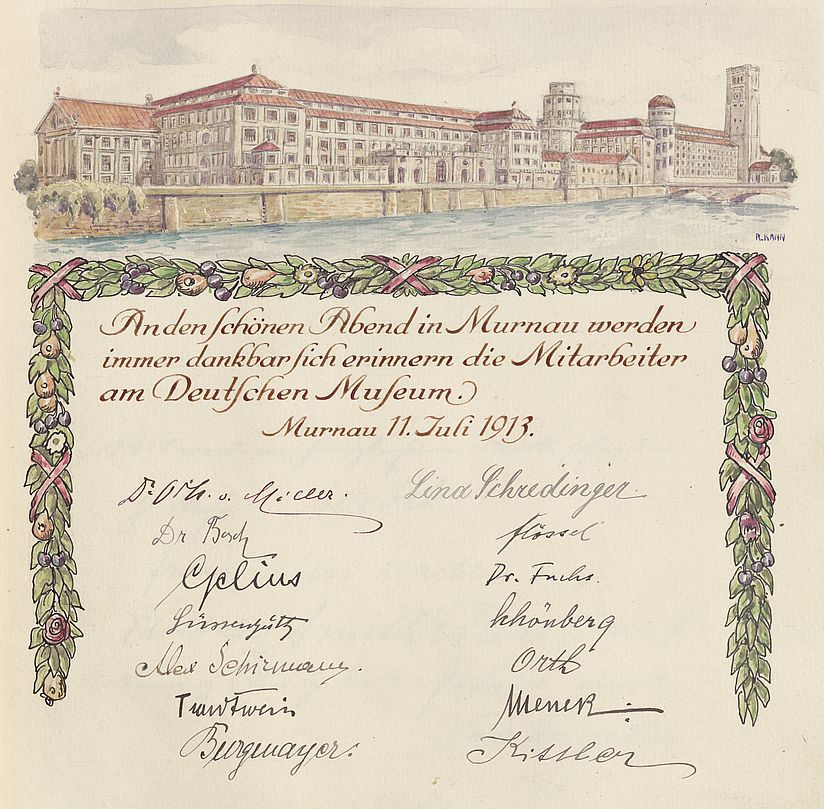 R. KAHN
An den schönen Abend in Murnau werden
immer dankbar sich erinnern die Mitarbeiter
am Deutschen Museum.
Murnau 11. Juli 1913.
v. Miller.
Lina Schredinger
Dr
Dr. Fuchs.
Schönberg
Alex Schirmann.
Orth
Trautwein
Burgmayer.
Kissler